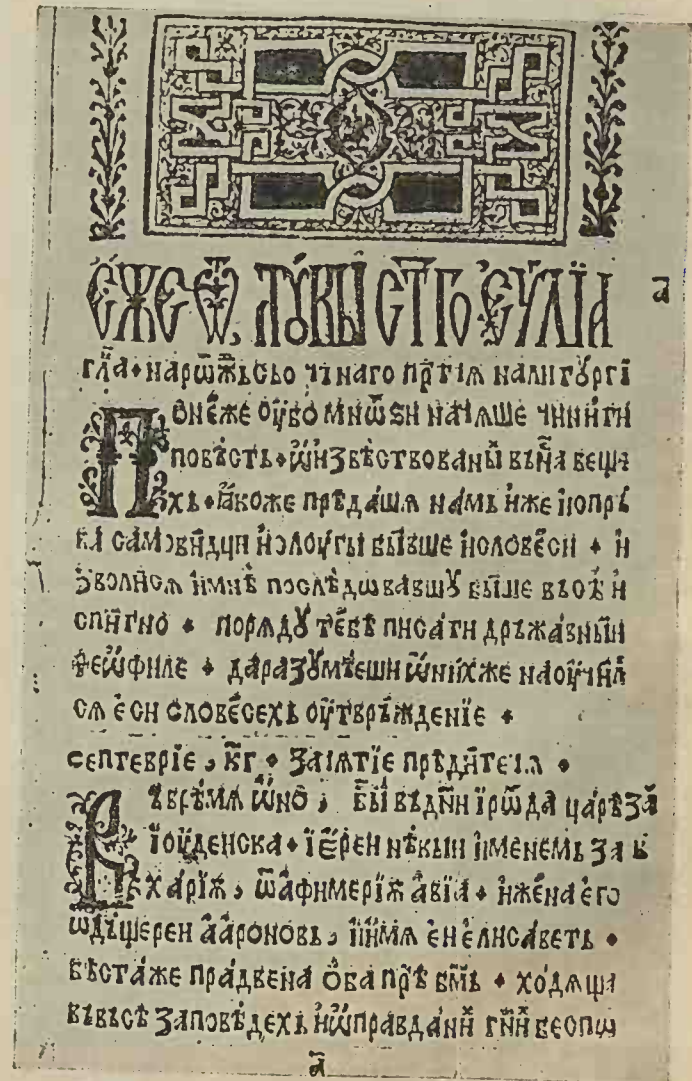 Є҆́ЖЕ Ѿ ЛꙊКЫ СТ҃ГО Є҆ѴЛІ́А
а҃
гла҃ · на рѡжⷣьство чтⷭнаго прⷣтїѧ на литꙋргі
Понє́же оу҆́бо мнѡѕи начѧше чини́ти
повѣсть · ѡ҆ и҆звѣствованы́и въ на́ вєща
хъ · ꙗ҆коже прѣдашѧ намь и҆же и҆спрь́
ва самови́дци и҆ слоугы бы́вше и҆ словє́си · и҆
зволисѧ и҆ мнѣ̀ послѣдѡвавшꙋ вы́шє въсѣ̀ и҆
спы́тно · порѧдꙋ тє́бѣ писа́ти дръжавный
Ѳєѡ҆филє · да разꙋмѣєши ѡ҆ ни́хжє наоучи́л
сѧ є҆си словєсєхъ оу҆твръ́ждєнїє ·
сєптєврїє, к҃г · зачѧтїє прⷣтєчѧ ·
Въ врѣ́мѧ ѡ҆́но, бы́ въ дн҃и і҆рѡда царѣ за
і҆оудєиска · і҆єрєи нѣкыи и҆мєнємь за в
харїѫ, ѿ афимєрїѫ авїа · и҆ жєна єго
ѿ дъщєрєи а҆ароновь, и҆ и҆мѧ є҆и є҆лисавєть ·
бѣста жє правєдна ѻ҆ба прѣⷣ бг҃мь · ходѧща
въ въсѣ заповѣдєхъ и҆ ѡ҆правдани гн҃и бєспо
а҃